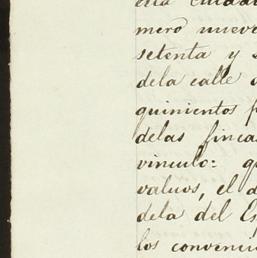 esta ciudad
mero nueve
setenta y
dela calle
quinientos
delas fincas
vinculo:
valuos, el
dela del
los convenci